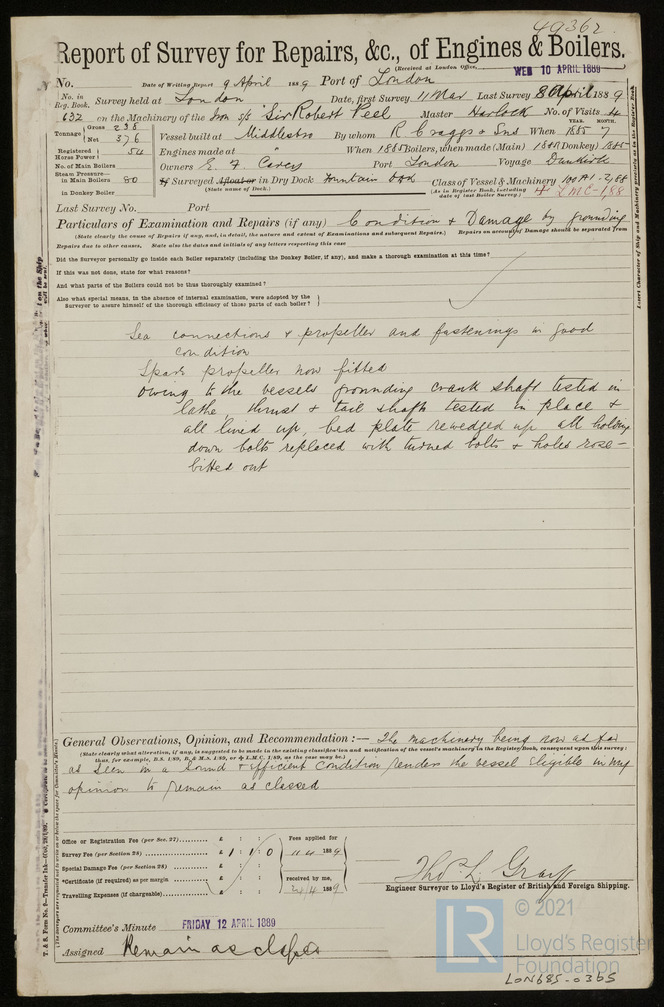 49362
Report of Survey for Repairs, &c., of Engines & Boilers.
(Received at London Office, WED 10 APRIL 1889
No. Date of Writing Report 9 April 1889 Port of London
No. in Reg. Book. Survey held at London Date, first Survey 11 Mar Last Survey 8 April 1889
632 on the Machinery of the Iron s/s "Sir Robert Peel Master Harlock No. of Visits 4
Tonnage Gross Net 376 Vessel built at Middlesbro By whom R Craggs & Sons When 1885 7 YEAR. MONTH.
Registered Horse Power 54 Engines made at When 1885 Boilers, when made (Main) 1885 (Donkey) 1885
No. of Main Boilers Owners E. F. Carey Port London Voyage Dunkirk
Steam Pressure— in Main Boilers 80 If Surveyed Afloat or in Dry Dock Fountain Dock Class of Vessel & Machinery 100A1-2/88
in Donkey Boiler (State name of Dock.) (As in Register Book, including date of last Boiler Survey.) LMC-1/88
Last Survey No. Port
Particulars of Examination and Repairs (if any) Condition & Damage by grounding
(State clearly the cause of Repairs if any, and, in detail, the nature and extent of Examinations and subsequent Repairs.) Repairs on account of Damage should be separated from
Repairs due to other causes, State also the dates and initials of any letters respecting this case
Did the Surveyor personally go inside each Boiler separately (including the Donkey Boiler, if any), and make a thorough examination at this time?
If this was not done, state for what reasons?
And what parts of the Boilers could not be thus thoroughly examined?
Also what special means, in the absence of internal examination, were adopted by the
Surveyor to assure himself of the thorough efficiency of those parts of each boiler?
Sea connections & propeller and fastenings in good
condition
Spare propeller now fitted
Owing to the vessels grounding crank shaft tested in
lathe, thrust & tail shafts tested in place &
all lined up, bed plate rewedged up all holding
down bolts replaced with turned bolts & holes rose-
bitted out
General Observations, Opinion, and Recommendation:— The machinery being now as far
(State clearly what alteration, if any, is suggested to be made in the existing classification and notification of the vessel's machinery in the Register Book, consequent upon this survey;
thus, for example, B.S. 1/89, B. & M.S. 1/89, or L.M.C. 1/89, as the case may be.)
as seen in a sound & efficient condition renders the vessel eligible in my
opinion to remain as classed
Office or Registration Fee (per Sec. 27) £ : : Fees applied for
Survey Fee (per Section 28) £ 1 : 1 : 0 11/4 1889
Special Damage Fee (per Section 28) £ : :
*Certificate (if required) as per margin £ : : received by me,
Travelling Expenses (if chargeable) £ : : 1889
Engineer Surveyor to Lloyd's Register of British and Foreign Shipping.
Committee's Minute FRIDAY 12 APRIL 1889
Assigned Remain as classed
LR
© 2021
Lloyd's Register
Foundation
LON685-0365